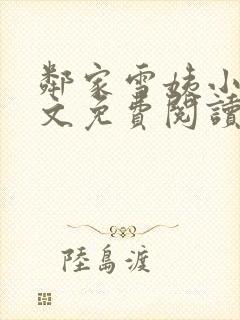 鄰家雪姨小
文免費閱讀
陸島渡